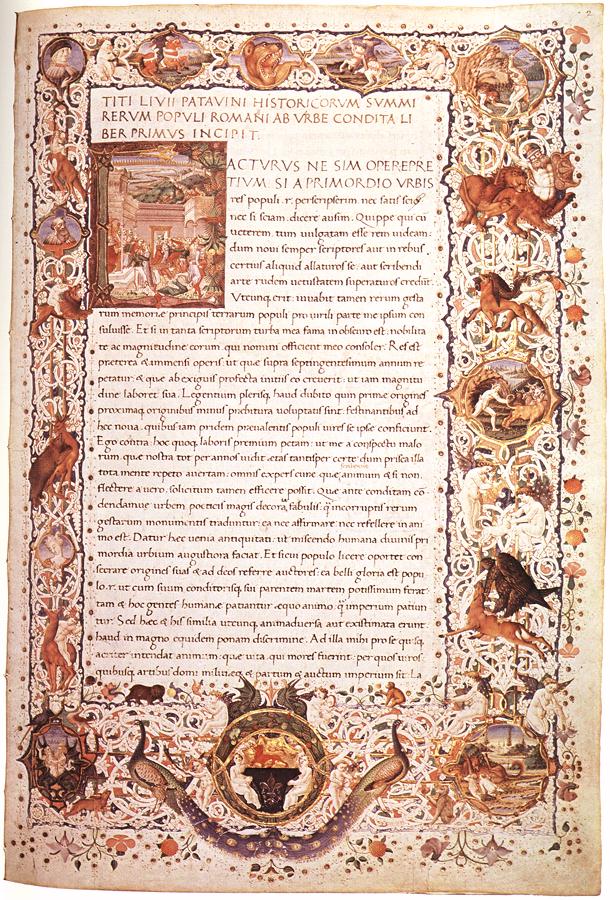 TITI LIVII PATAVINI HISTORICORVM SVMMI
RERVM POPVLI ROMANI AB VRBE CONDITA LI
BER PRIMVS INCIPIT.
ACTVRVS NE SIM OPEREPRE
TIVM. SI A PRIMORDIO VRBIS
res populi .r. perscripserim nec satis scio
nec si sciam: dicere ausim. Quippe qui cū
ueterem: tum uulgatam esse rem uideam:
dum noui semper scriptores aut in rebus
certius aliquid allaturos se: aut scribendi
arte rudem uetustatem superaturos credūt.
Vtcunq, erit: iuuabit tamen rerum gesta
rum memoriæ principis terrarum populi pro uirili parte me ipsum con
suluisse. Et si in tanta scriptorum turba mea fama in obscuro est: nobilita
te ac magnitudine eorum: qui nomini officient meo consoler. Res est
præterea & immensi operis: ut quæ supra septingentesimum annum re
petatur: & quæ ab exiguis profecta initiis eo creuerit: ut iam magnitu
dine laboret sua. Legentium plerisq, haud dubito quin primæ origines
proximaq, originibus minus præbitura uoluptatis sint: festinantibus ad
hec noua: quibus iam pridem præualentis populi uires se ipse conficiunt.
Ego contra: hoc quoq, laboris premium petam: ut me a conspectu malo
rum: quæ nostra tot per annos uidit ætas: tantisper certe: dum prisca illa
tota mente repeto: auertam: omnis expers curæ: quæ animum & si non
flectere a uero: solicitum tamen efficere possit. Quæ ante conditam cō
dendamue urbem: poeticis magis decora fabulis: q̄ incorruptis rerum
gestarum monumentis traduntur: ea nec affirmare: nec refellere in ani
mo est. Datur hec uenia antiquitati: ut miscendo humana diuinis pri
mordia urbium augustiora faciat. Et si cui populo licere oportet con
secrare origines suas & ad deos referre auctores: ea belli gloria est popu
lo .r. ut cum suum conditorisq, sui parentem martem potissimum ferat:
tam & hoc gentes humanæ patiantur æquo animo: q̄ imperium patiun
tur. Sed hæc & his similia utcunq, animaduersa aut existimata erunt
haud in magno equidem ponam discrimine. Ad illa mihi pro se quisq,
acriter intendat animum: quæ uita: qui mores fuerint: per quos uiros:
quibusq, artibus domi militieq & partum & auctum imperium sit. La